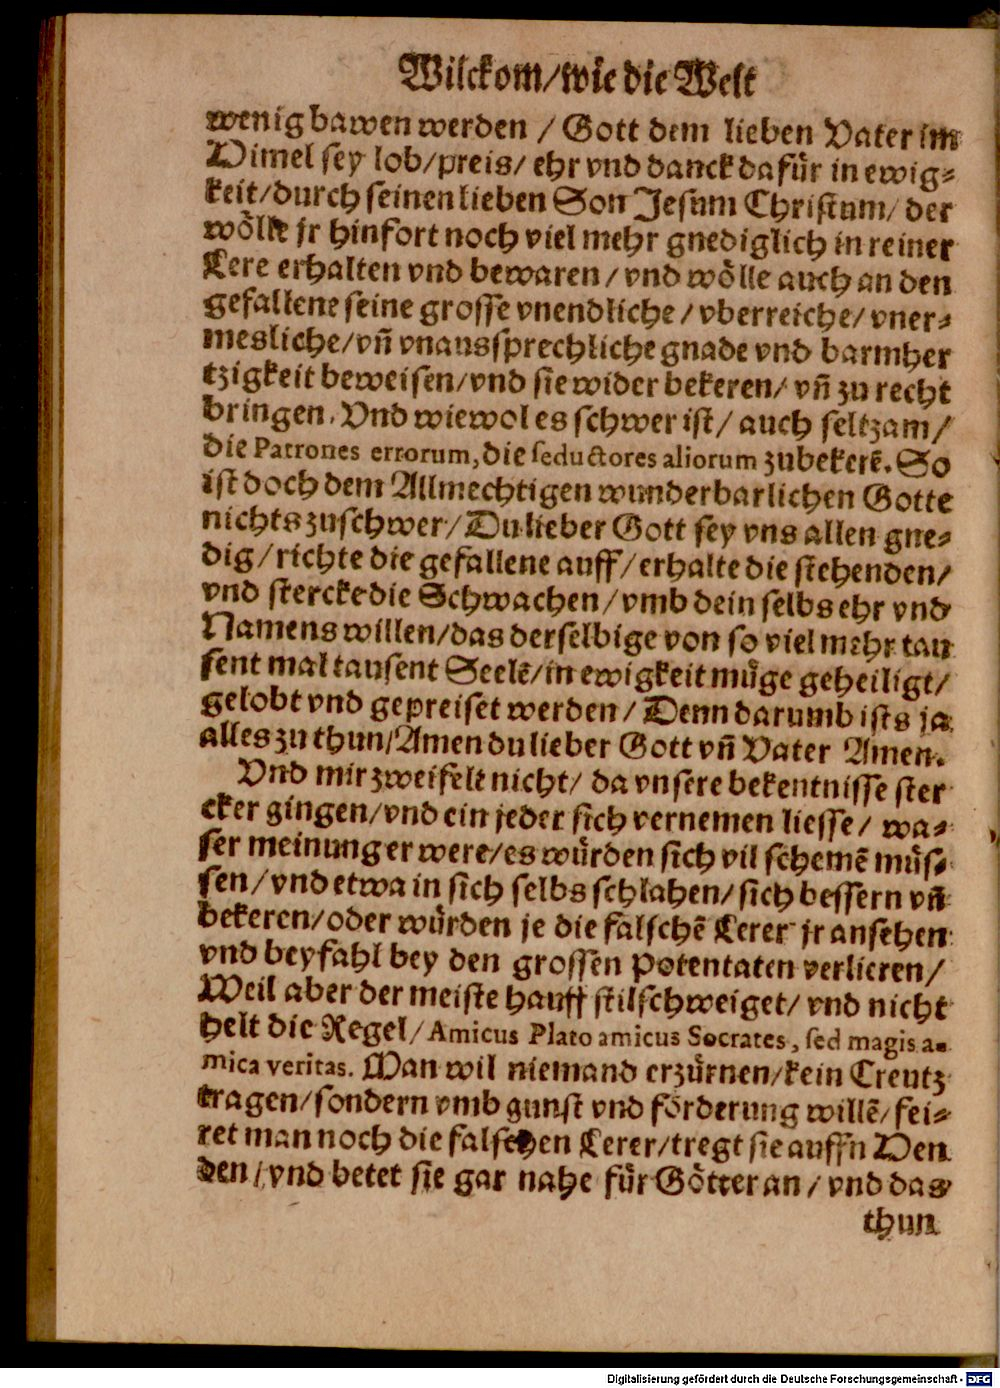 Wilckom/wie die Welt
wenig bawen werden / Gott dem lieben Vater im
Himel sey lob/preis/ ehr vnd danck dafür in ewig-
keit/durch seinen lieben Son Jesum Christum/ der
wölle jr hinfort noch viel mehr gnediglich in reiner
Lere erhalten vnd bewaren / vnd wölle auch an den
gefallene seine grosse vnendliche / vberreiche/ vner-
mesliche/vñ vnaussprechliche gnade vnd barmher
tzigkeit beweisen/vnd sie wider bekeren/ vñ zu recht
bringen. Vnd wiewol es schwer ist/ auch seltzam/
die Patrones errorum, die seductores aliorum zubekerẽ. So
ist doch dem Allmechtigen wunderbarlichen Gotte
nichts zuschwer/ Du lieber Gott sey vns allen gne-
dig/richte die gefallene auff/erhalte die stehenden/
vnd stercke die Schwachen/vmb dein selbs ehr vnd
Namens willen/das derselbige von so viel mehr tau
sent mal tausent Seelẽ/in ewigkeit müge geheiligt/
gelobt vnd gepreiset werden/ Denn darumb ists ja
alles zu thun/Amen du lieber Gott vñ Vater Amen.
Vnd mir zweifelt nicht/ da vnsere bekentnisse ster
cker gingen/vnd ein jeder sich vernemen liesse/ wa-
ser meinung er were/es würden sich vil schemẽ müs-
sen/vnd etwa in sich selbs schlahen/ sich bessern vñ
bekeren/oder würden je die falschẽ Lerer jr ansehen
vnd beyfahl bey den grossen Potentaten verlieren/
Weil aber der meiste hauff stilschweiget/ vnd nicht
helt die Regel/ Amicus Plato amicus Socrates, sed magis a-
mica veritas. Man wil niemand erzürnen/kein Creutz
tragen/sondern vmb gunst vnd förderung willẽ/fei-
ret man noch die falschen Lerer/tregt sie auffn Hen
den/ vnd betet sie gar nahe für Götter an/ vnd das
thun
Digitalisierung gefördert durch die Deutsche Forschungsgemeinschaft - DFG